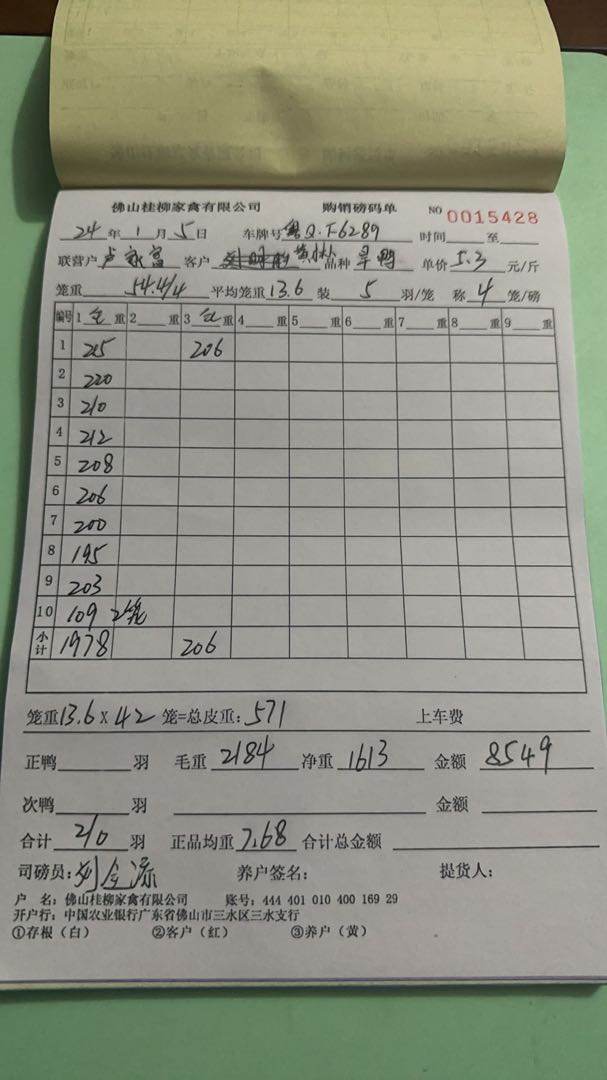 佛山桂柳家禽有限公司 购销磅码单 NO 0015428
24年1月5日 车牌号粤Q.F6289 时间 至
联营户 卢家富 客户 黄彬 品种 旱鸭 单价 5.3 元/斤
笼重 54.4/4 平均笼重 13.6 装 5 羽/笼 称 4 笼/磅
编号 1 仝 重 2 重 3 红 重 4 重 5 重 6 重 7 重 8 重 9 重
1 215 206
2 220
3 210
4 212
5 208
6 206
7 200
8 195
9 203
10 109 2笼
小计 1978 206
笼重 13.6 X 42 笼=总皮重: 571 上车费
正鸭 羽 毛重 2184 净重 1613 金额 8549
次鸭 羽 金额
合计 210 羽 正品均重 7.68 合计总金额
司磅员: 养户签名: 提货人:
户 名: 佛山桂柳家禽有限公司 账号: 444 401 010 400 169 29
开户行: 中国农业银行广东省佛山市三水区三水支行
①存根（白） ②客户（红） ③养户（黄）